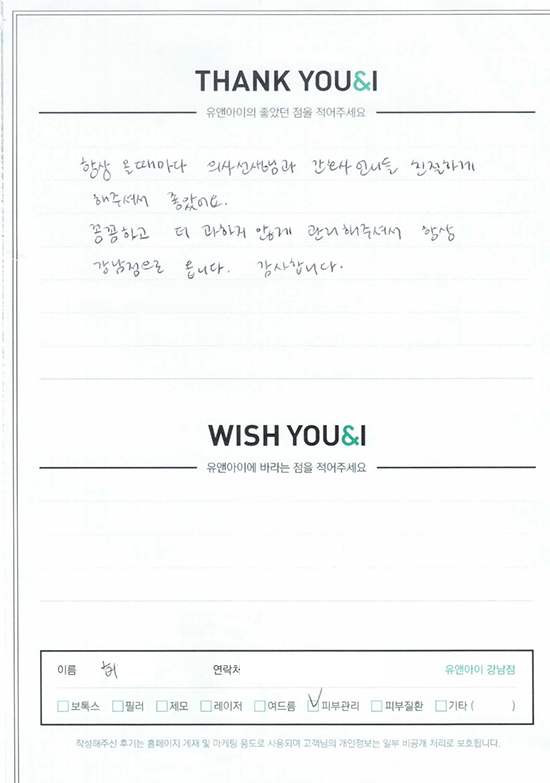 THANK YOU&I
유앤아이의 좋았던 점을 적어주세요
항상 올때마다 의사선생님과 간호사 언니들 친절하게
해주셔서 좋았어요.
꼼꼼하고 더 과하지 않게 관리해주셔서 항상
강남점으로 옵니다. 감사합니다.
WISH YOU&I
유앤아이에 바라는 점을 적어주세요
이름 허 연락처 유앤아이 강남점
보톡스 필러 제모 레이저 여드름 피부관리 피부질환 기타 ( )
작성해주신 후기는 홈페이지 게재 및 마케팅 용도로 사용되며 고객님의 개인정보는 일부 비공개 처리로 보호됩니다.